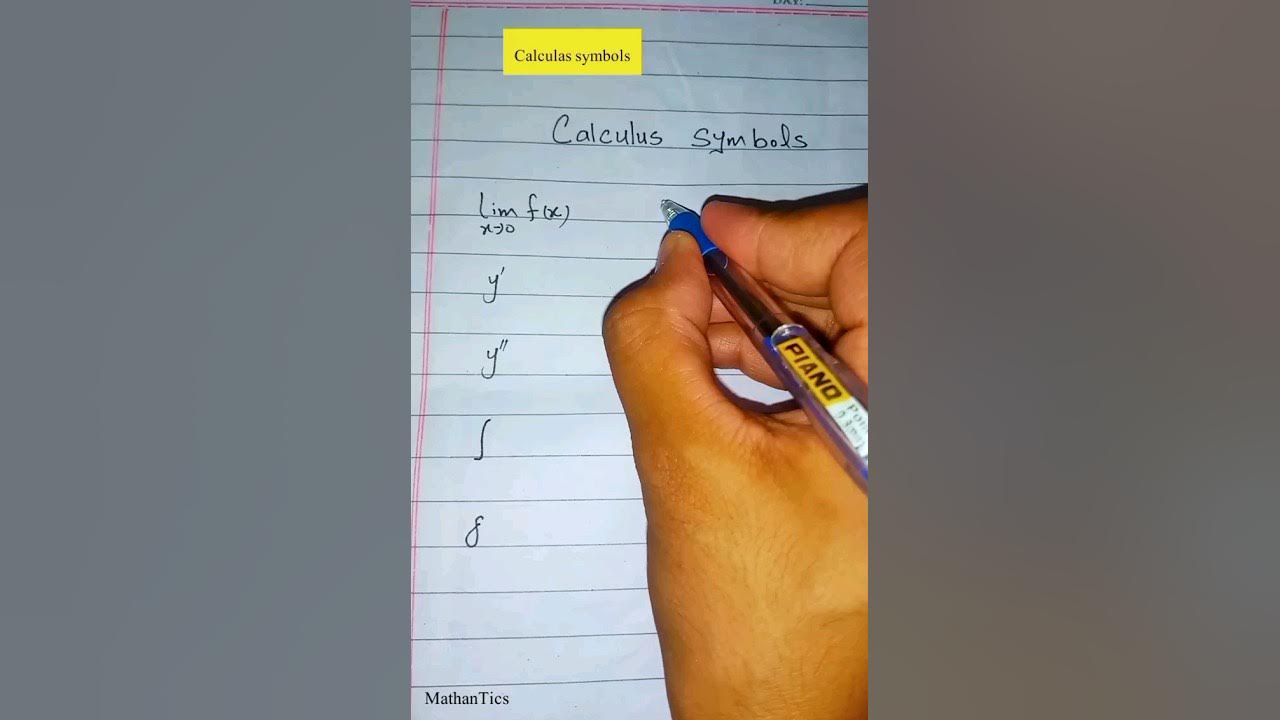 Calculas symbols
Calculus symbols
lim f(x)
x→0
y'
y"
∫
PIANO
MathanTics